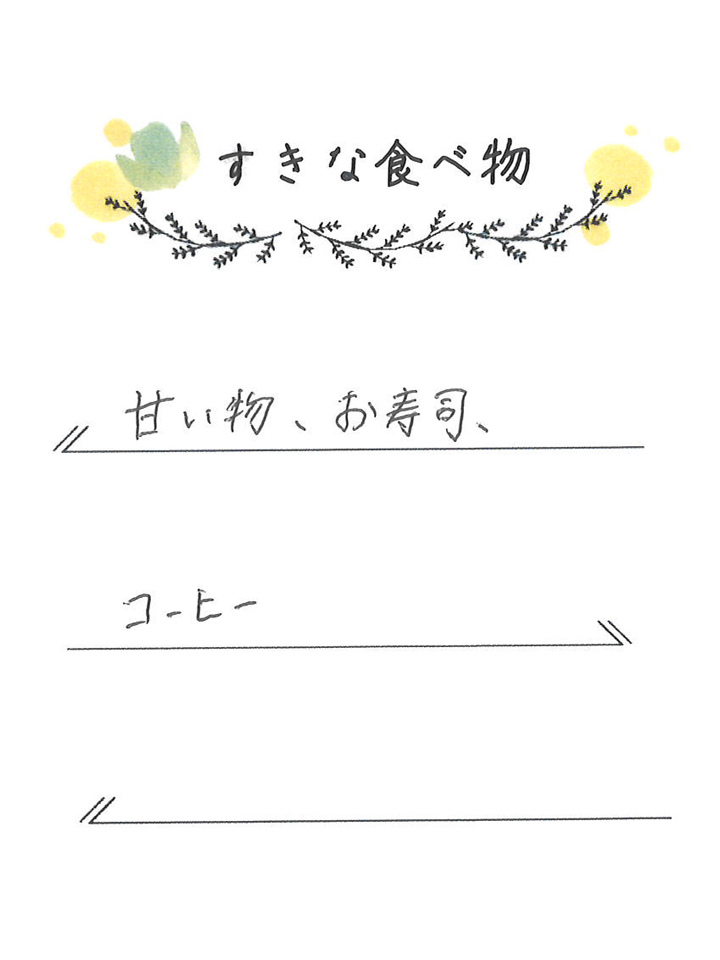 すきな食べ物
甘い物、お寿司、
コーヒー